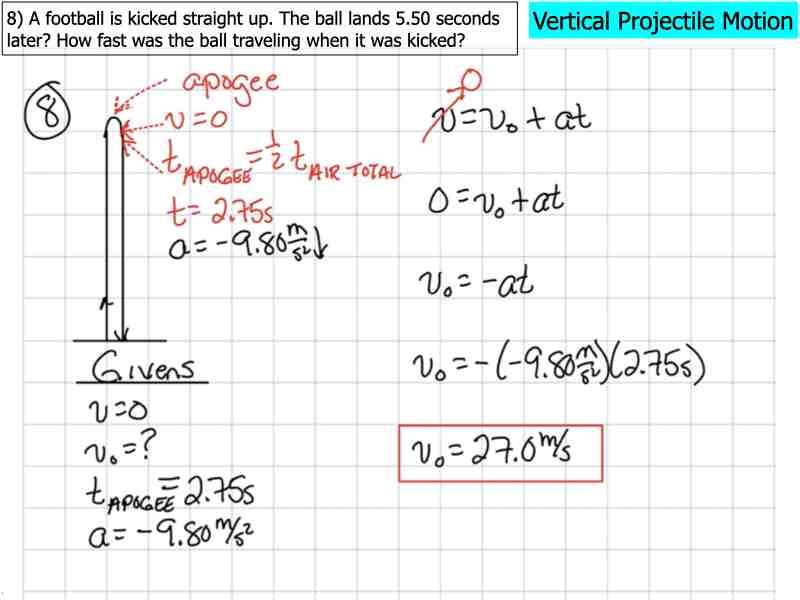 8) A football is kicked straight up. The ball lands 5.50 seconds
later? How fast was the ball traveling when it was kicked?
Vertical Projectile Motion
8
apogee
v = 0
t APOGEE = 1/2 t AIR TOTAL
t = 2.75s
a = -9.80 m/s² ↓
Givens
v = 0
v₀ = ?
t APOGEE = 2.75s
a = -9.80 m/s²
0
v = v₀ + at
0 = v₀ + at
v₀ = -at
v₀ = -(-9.80 m/s²)(2.75s)
v₀ = 27.0 m/s